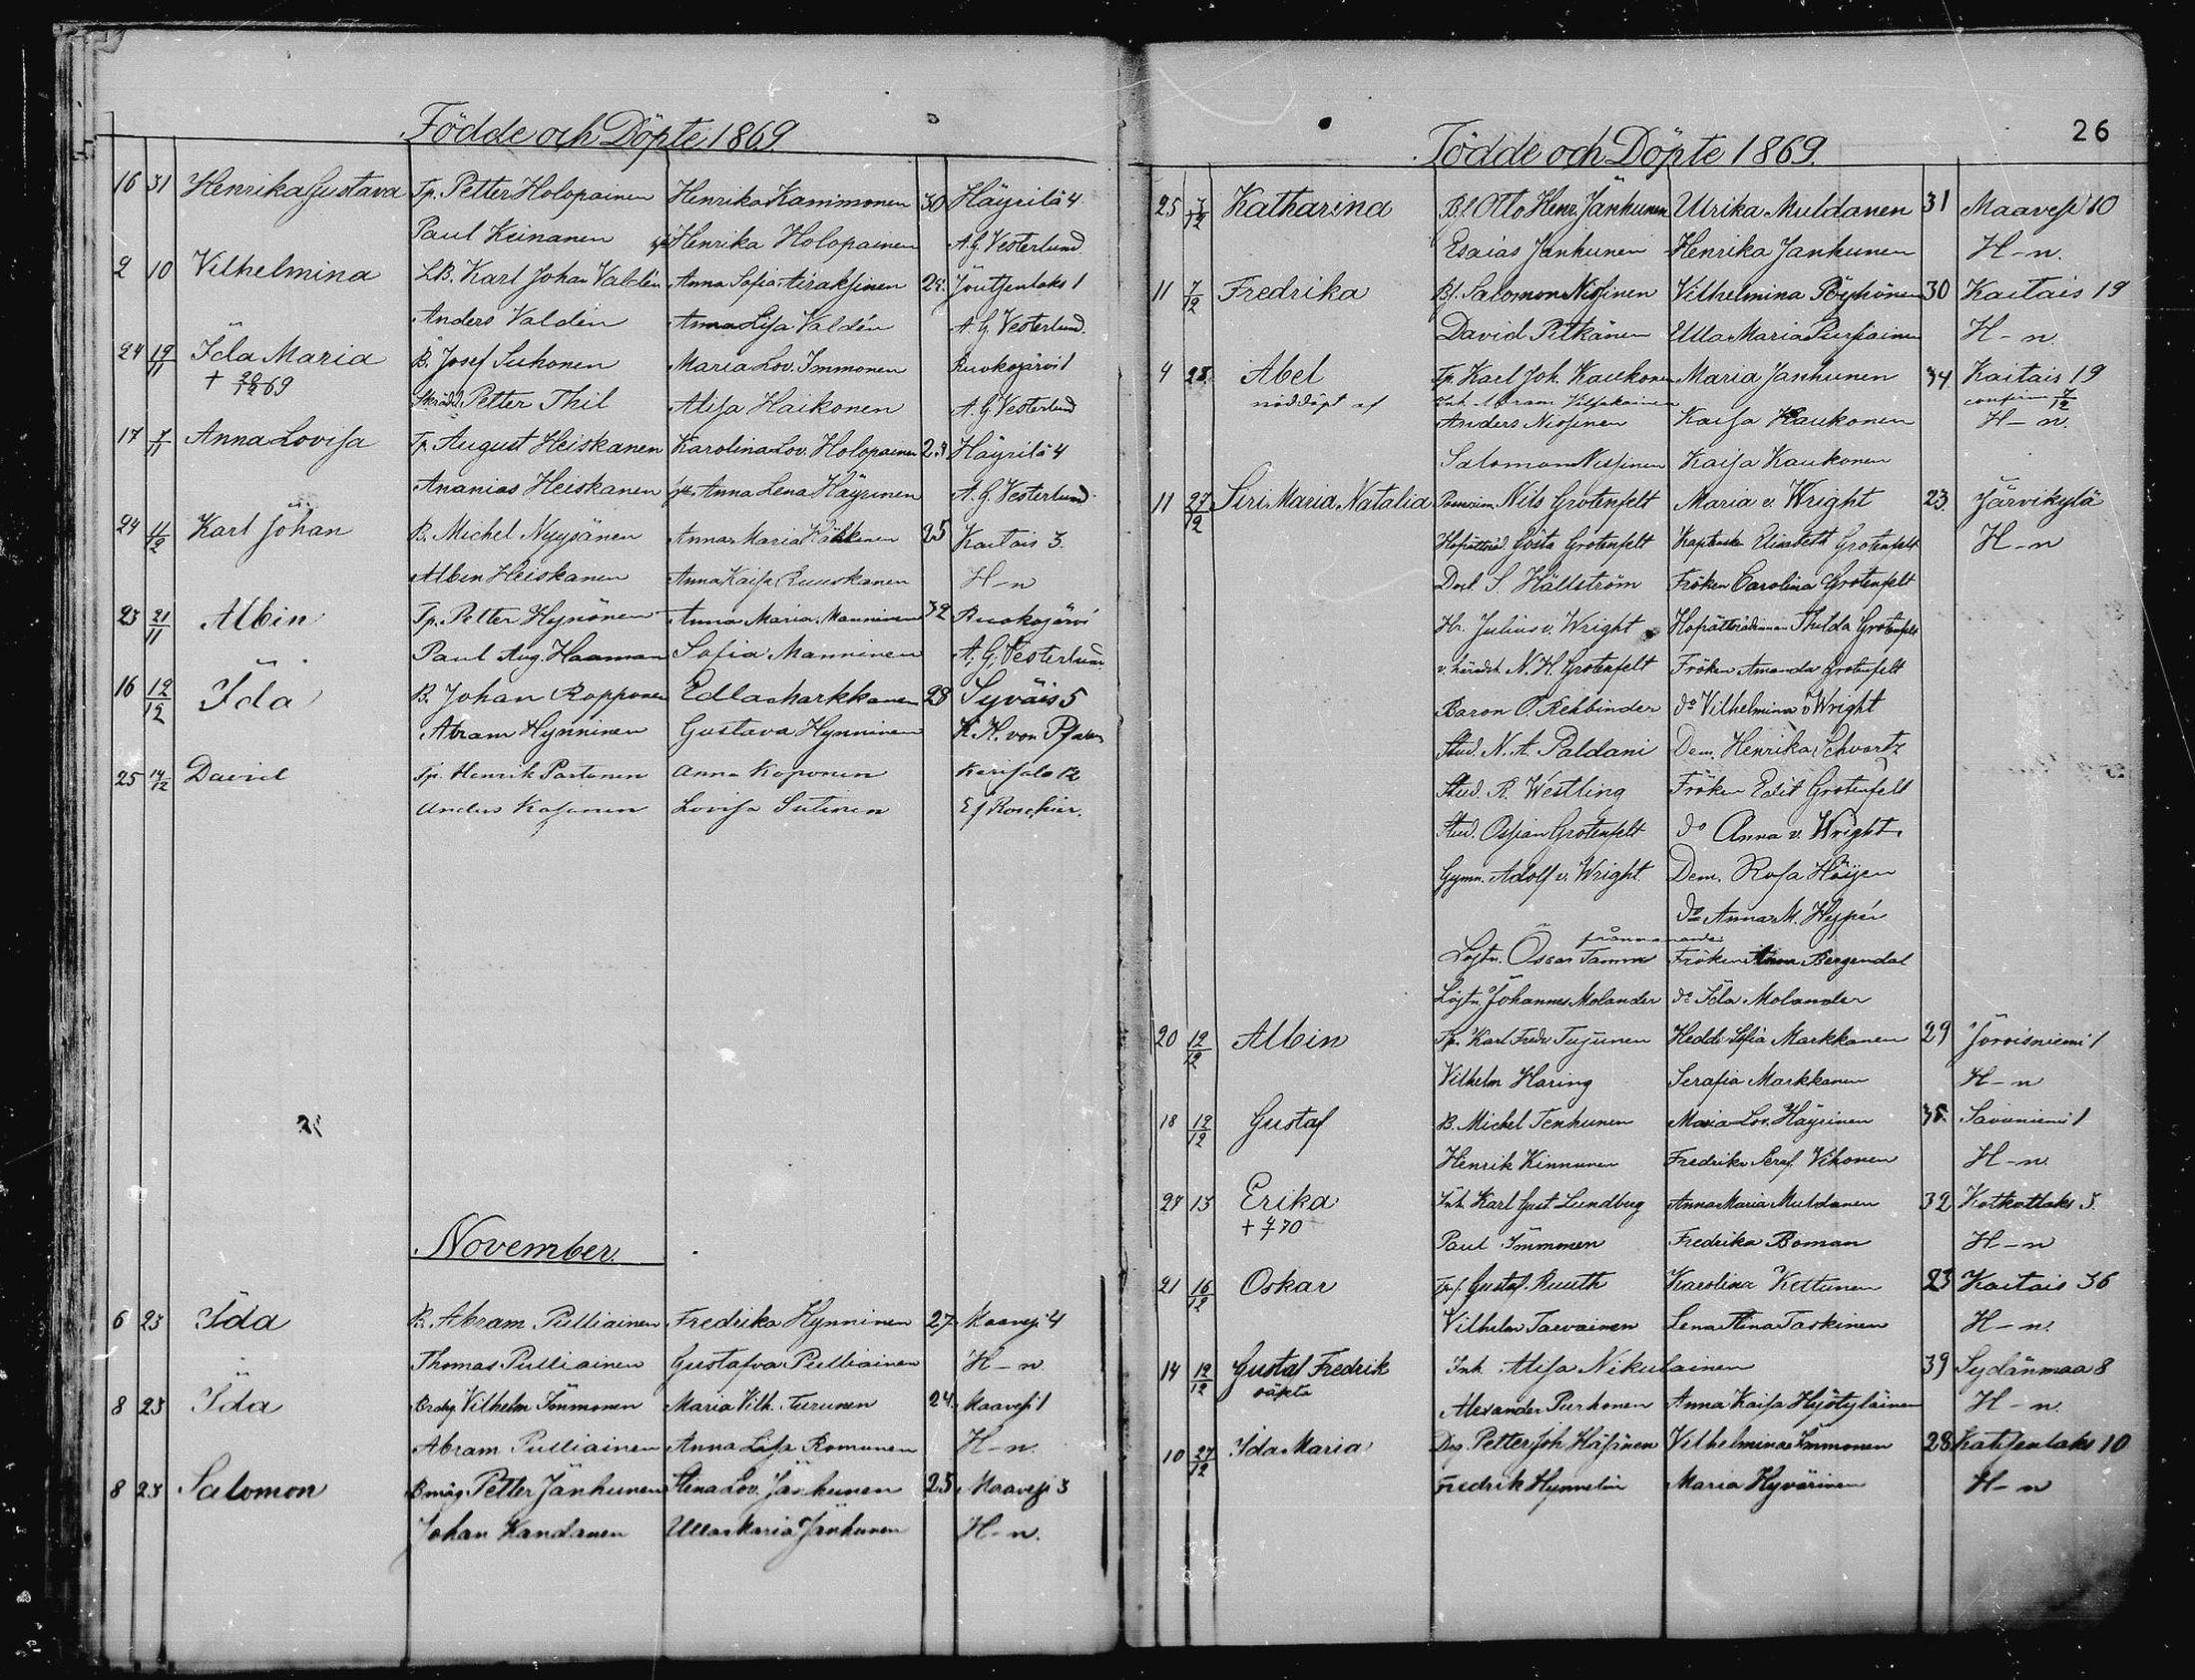 Födde och Döpte 1869.
16 31 Henrika Gustava Tp. Petter Holopainen Henrika Kammonen 30 Häyrilä 4
Paul Keinanen Henrika Holopainen A. G. Vesterlund.
2 10 Vilhelmina LB. Karl Johan Valdén Anna Sofia Airaksinen 24. Joutsenlaks 1
Anders Valdén Anna Lisa Valdén A. G. Vesterlund.
24 12/11 Ida Maria B. Josef Suhonen Maria Lov. Immonen Ruokojärvi 1
Skrädd. Petter Thil Alisa Haikonen A. G. Vesterlund
17 7/11 Anna Lovisa Tp. August Heiskanen Karolina Lov. Holopainen Häyrilä 4
Ananias Heiskanen Anna Lena Häyrinen A. G. Vesterlund.
24 11/12 Karl Johan B. Michel Nyysänen Anna Maria 25 Kaitais 3.
Albin Heiskanen Anna Kaisa Ruuskanen H-n
23 21/11 Albin Tp. Petter Hynönen Anna Maria Manninen 32 Ruokojärvi
Paul Aug. Haaman Sofia Manninen A. G. Vesterlund.
16 12/12 Ida B. Johan Ropponen Edla Markkanen 28 Syväis 5
Abram Hynninen Gustava Hynninen K. H. von
25 14/12 David Tp. Henrik Partanen Anna Koponen Karisalo 12
Anders Lovisa Sutinen Roschier.
November.
6 23 Ida B. Abram Pulliainen Fredrika Hynninen 27 Maavesi 4
Thomas Pulliainen Gustafva Pulliainen H-n.
8 23 Ida Vilhelm Immonen Maria Vilh. Turunen 24. Maavesi 1
Abram Pulliainen Anna Lisa Romanen H-n.
8 23 Salomon Bmåg Petter Janhunen Stina Lov. Janhunen 25 Maavesi 3
Johan Kandanen Ulla Maria Janhunen H-n.
26
Födde och Döpte 1869.
25 7/12 Katharina Bf. Otto Henr. Janhunen Ulrika Muldanen 31 Maavesi 10
Esaias Janhunen Henrika Janhunen H-n.
11 7/12 Fredrika Bf. Salomon Nissinen Vilhelmina Pöyhönen 30 Kaitais 19
David Pitkänen Ulla Maria Pursiainen H-n.
4 28. Abel Tp. Karl Joh. Kaukonen Maria Janhunen 34 Kaitais 19
nöddöpt af Inh. Abram confirm 7/12
Anders Nissinen Kaisa Kaukonen H-n.
Salomon Nissinen Kaisa Kaukonen
11 27/12 Siri Maria Natalia Nils Grotenfelt Maria v. Wright 23. Järvikylä
Hofrättsråd. Gösta Grotenfelt Elisabeth Grotenfelt H-n
S. Hällström Fröken Carolina Grotenfelt
Hr. Julius v. Wright Hofrättsrådinnan Thilda Grotenfelt
v. häradsh. N. H. Grotenfelt Fröken Amanda Grotenfelt
Baron O. Rehbinder do Vilhelmina v. Wright
Stud. N. A. Paldani Dem. Henrika Schvartz
Stud. R. Westling Fröken Edit Grotenfelt
Stud. Ossian Grotenfelt do Anna v. Wright.
Gymn. Adolf v. Wright Dem. Rosa Höijen
do Anna M. Hyppén
frånvarande
Löjtn. Oscar Tamm Fröken Bergendal
Löjtn. Johannes Molander do Ida Molander
20 12/12 Albin Tp. Karl Fredr. Tujunen Hedda Sofia Markkanen 29 Jorvisniemi 1
Vilhelm Haring Serafia Markkanen H-n
18 12/12 Gustaf B. Michel Tenhunen Maria Lov. Häyrinen 35. Savuniemi 1
Henrik Kinnunen Fredrika Seraf. Vihonen H-n.
27 13 Erika Inh. Karl Gust. Lundberg Anna Maria Muldanen 32 Kotkatlaks 5.
Paul Immonen Fredrika Boman H-n
21 16/12 Oskar Gustaf Ruuth Karolina Kettunen 23 Kaitais 36
Vilhelm Tarvainen Lena Stina Taskinen H-n.
14 12/12 Gustaf Fredrik Inh. Alisa Nikulainen 39 Sydänmaa 8
oäkta
Alexander Purhonen Anna Kaisa Hyötyläinen H-n.
10 27/12 Ida Maria Drg. Petter Joh. Häyinen Vilhelmina Immonen 28 Katisenlaks 10
Fredrik Hynnelin Maria Hyvärinen H-n